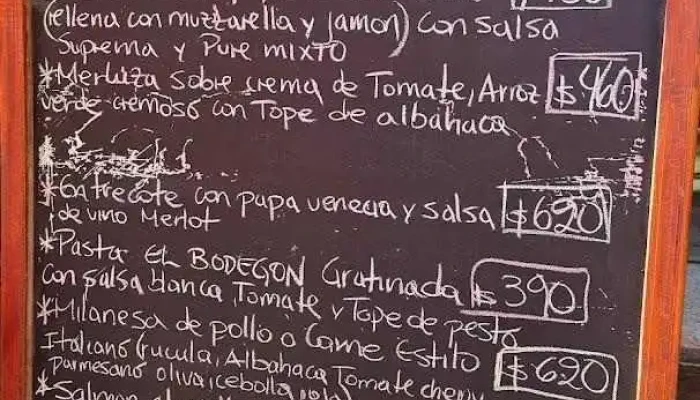 (rellena con muzzarella y jamon) con salsa
suprema y Pure mixto
*Merluza sobre crema de Tomate, Arroz $460
verde cremoso con Tope de albahaca
*Entrecote con papa venecia y salsa $620
de vino Merlot
*Pasta EL BODEGON Gratinada $390
con salsa blanca Tomate y Tope de pesto
*Milanesa de pollo o Carne Estilo $620
Italiano (rucula, Albahaca Tomate cherry
Parmesano oliva, cebolla
*Salmon